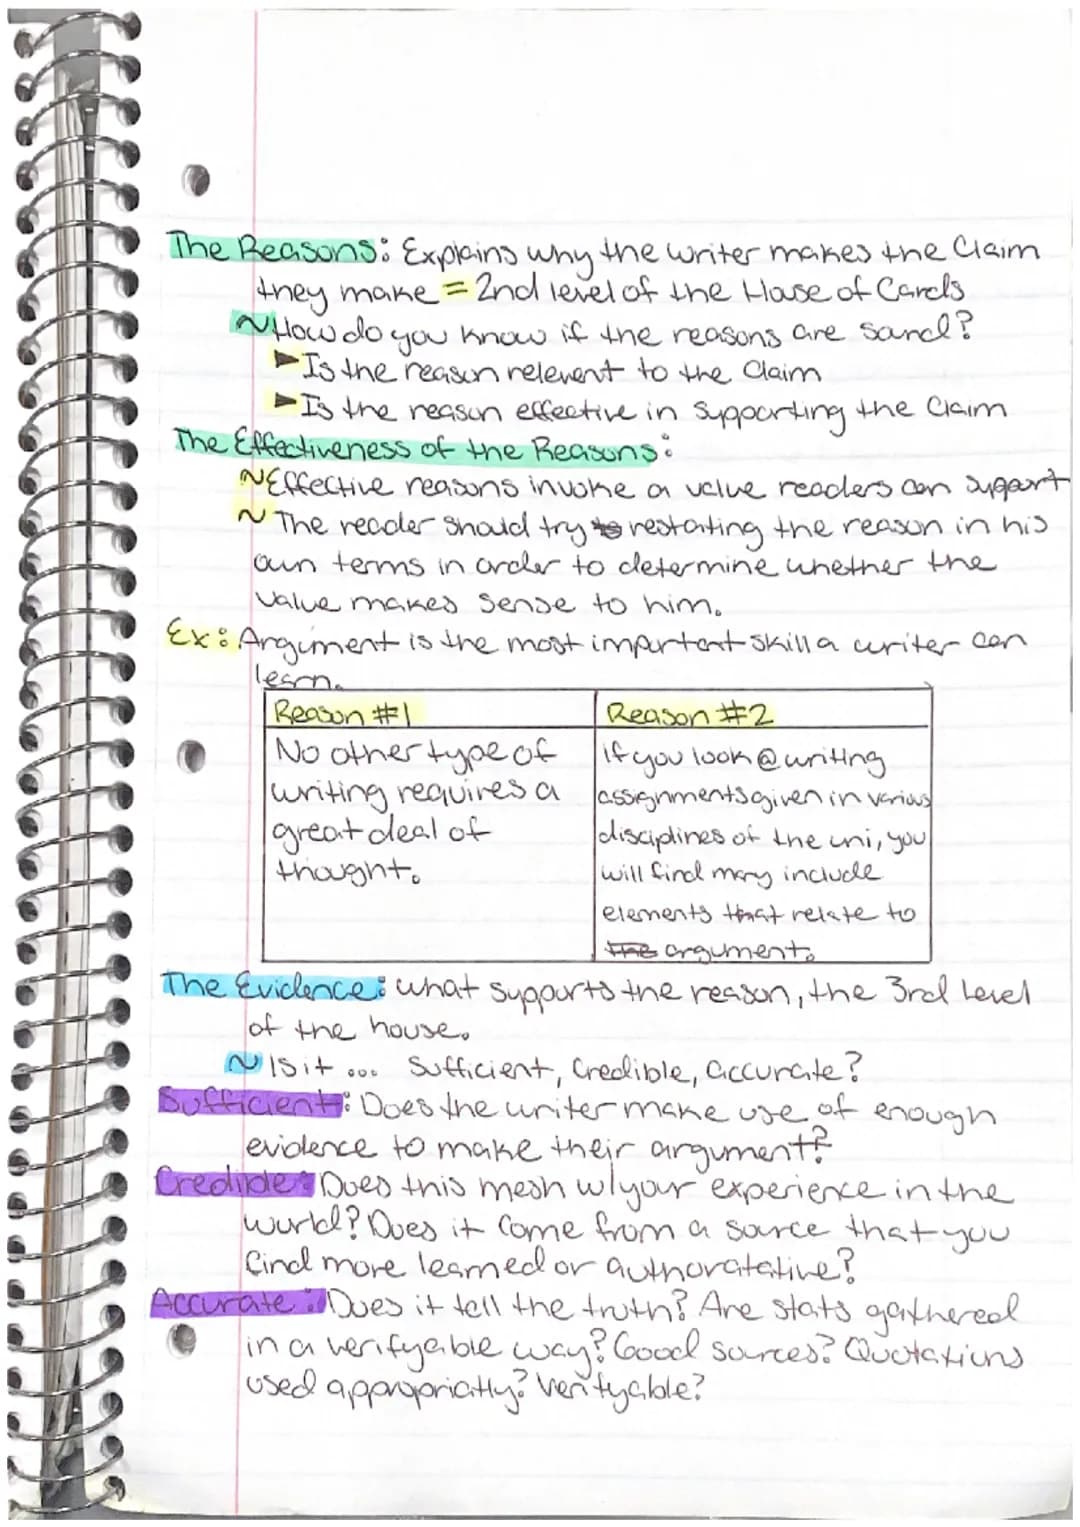 The Reasons: Explains why the writer makes the Claim
they make = 2nd level of the House of Cards
~How do you know if the reasons are sound?
►Is the reason relevent to the Claim
►Is the reason effective in supporting the Claim
The Effectiveness of the Reasons:
~Effective reasons invoke a value readers can support
~ The reader should try to restating the reason in his
own terms in order to determine whether the
value makes sense to him.
Ex: Argument is the most important skill a writer can
learn.
Reason #1
No other type of
writing requires a
great deal of
thought.
Reason #2
If you look @ writing
assignments given in various
disciplines of the uni, you
will find many include
elements that relate to
the argument.
The Evidence: what supports the reason, the 3rd Level
of the house.
~ Is it ... Sufficient, Credible, accurate?
Sufficient: Does the writer make use of enough
evidence to make their argument?
Credible: Does this mesh w/your experience in the
world? Does it come from a source that you
find more learned or authoratative?
Accurate: Does it tell the truth? Are stats gathered
in a verifyable way? Good sources? Quotations
used appropriatly? Verifyable?